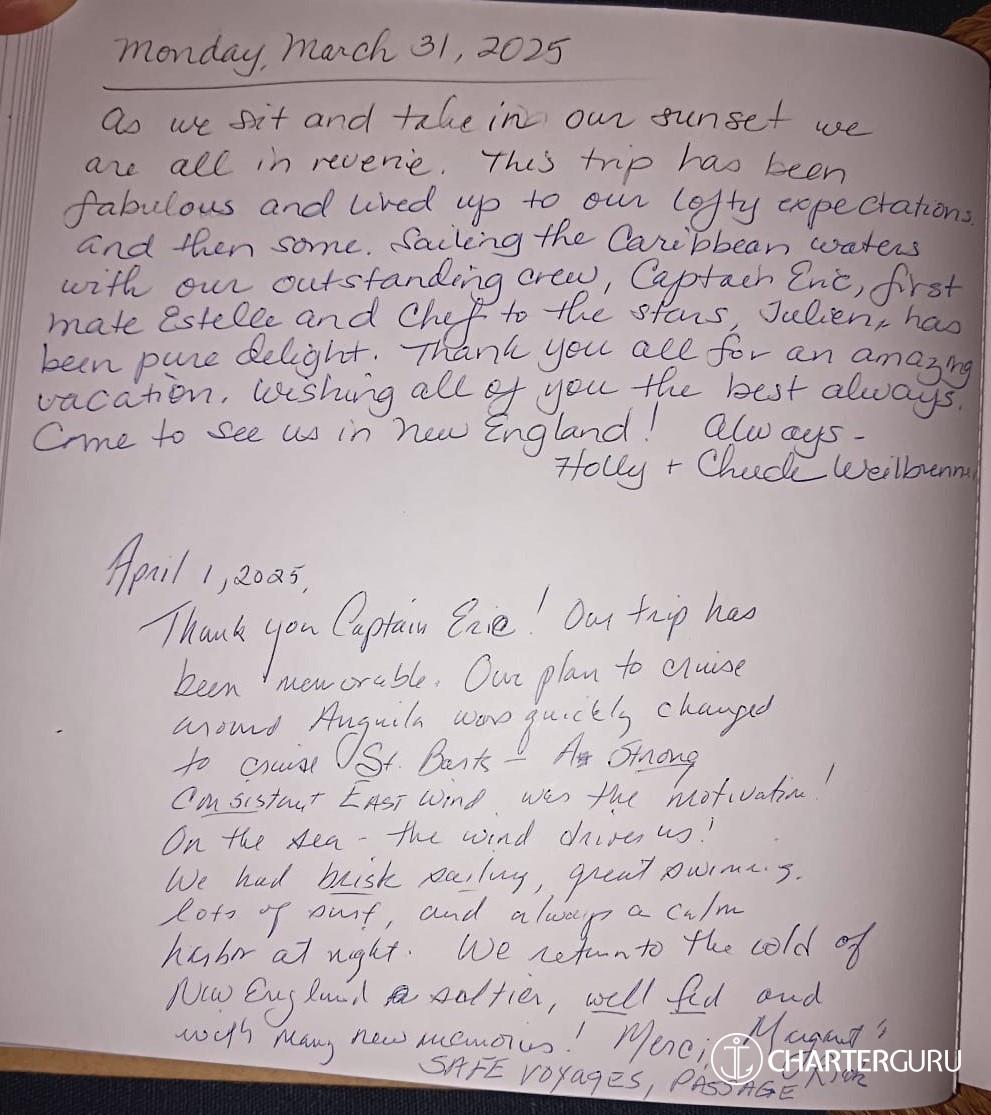 Monday, March 31, 2025
As we sit and take in our sunset we
are all in reverie. This trip has been
fabulous and lived up to our lofty expectations
and then some. Sailing the Caribbean waters
with our outstanding crew, Captain Eric, first
mate Estelle and Chef to the stars, Julien, has
been pure delight. Thank you all for an amazing
vacation. Wishing all of you the best always.
Come to see us in New England! Always -
Holly + Chuck
April 1, 2025,
Thank you Captain Eric! Our trip has
been memorable. Our plan to cruise
around Anguila was quickly changed
to cruise St. Barts - A Strong
Consistant EAST wind was the motivation!
On the sea - the wind drives us!
We had brisk sailing, great swimming,
lots of surf, and always a calm
harbor at night. We return to the cold of
New England saltier, well fed and
with many new memories! Merci,
SAFE VOYAGES, PASSAGE
CHARTERGURU